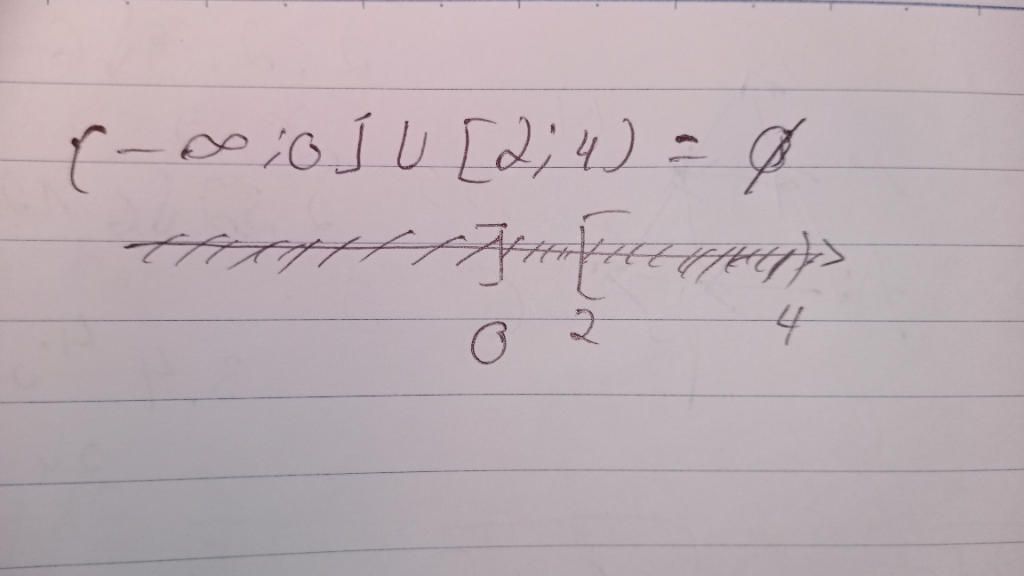 (-∞;0]∪[2;4) = ∅
] [ )
0 2 4